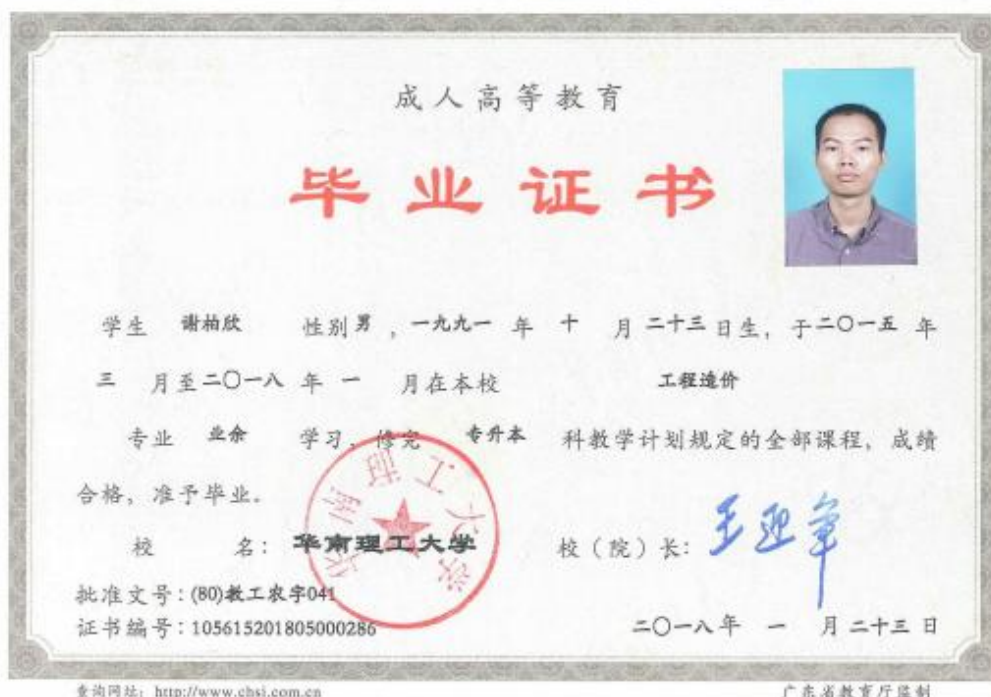 成人高等教育
毕业证书
学生 谢柏欣 性别 男 ，一九九一 年 十 月 二十三 日生，于 二〇一五 年
三 月至 二〇一八 年 一 月在本校 工程造价
专业 业余 学习，修完 专升本 科教学计划规定的全部课程，成绩
合格，准予毕业。
校 名：华南理工大学 校（院）长：王迎军
华南理工大学
批准文号：(80)教工农字041
证书编号：105615201805000286 二〇一八 年 一 月 二十三 日
查询网址：http://www.chsi.com.cn 广东省教育厅监制